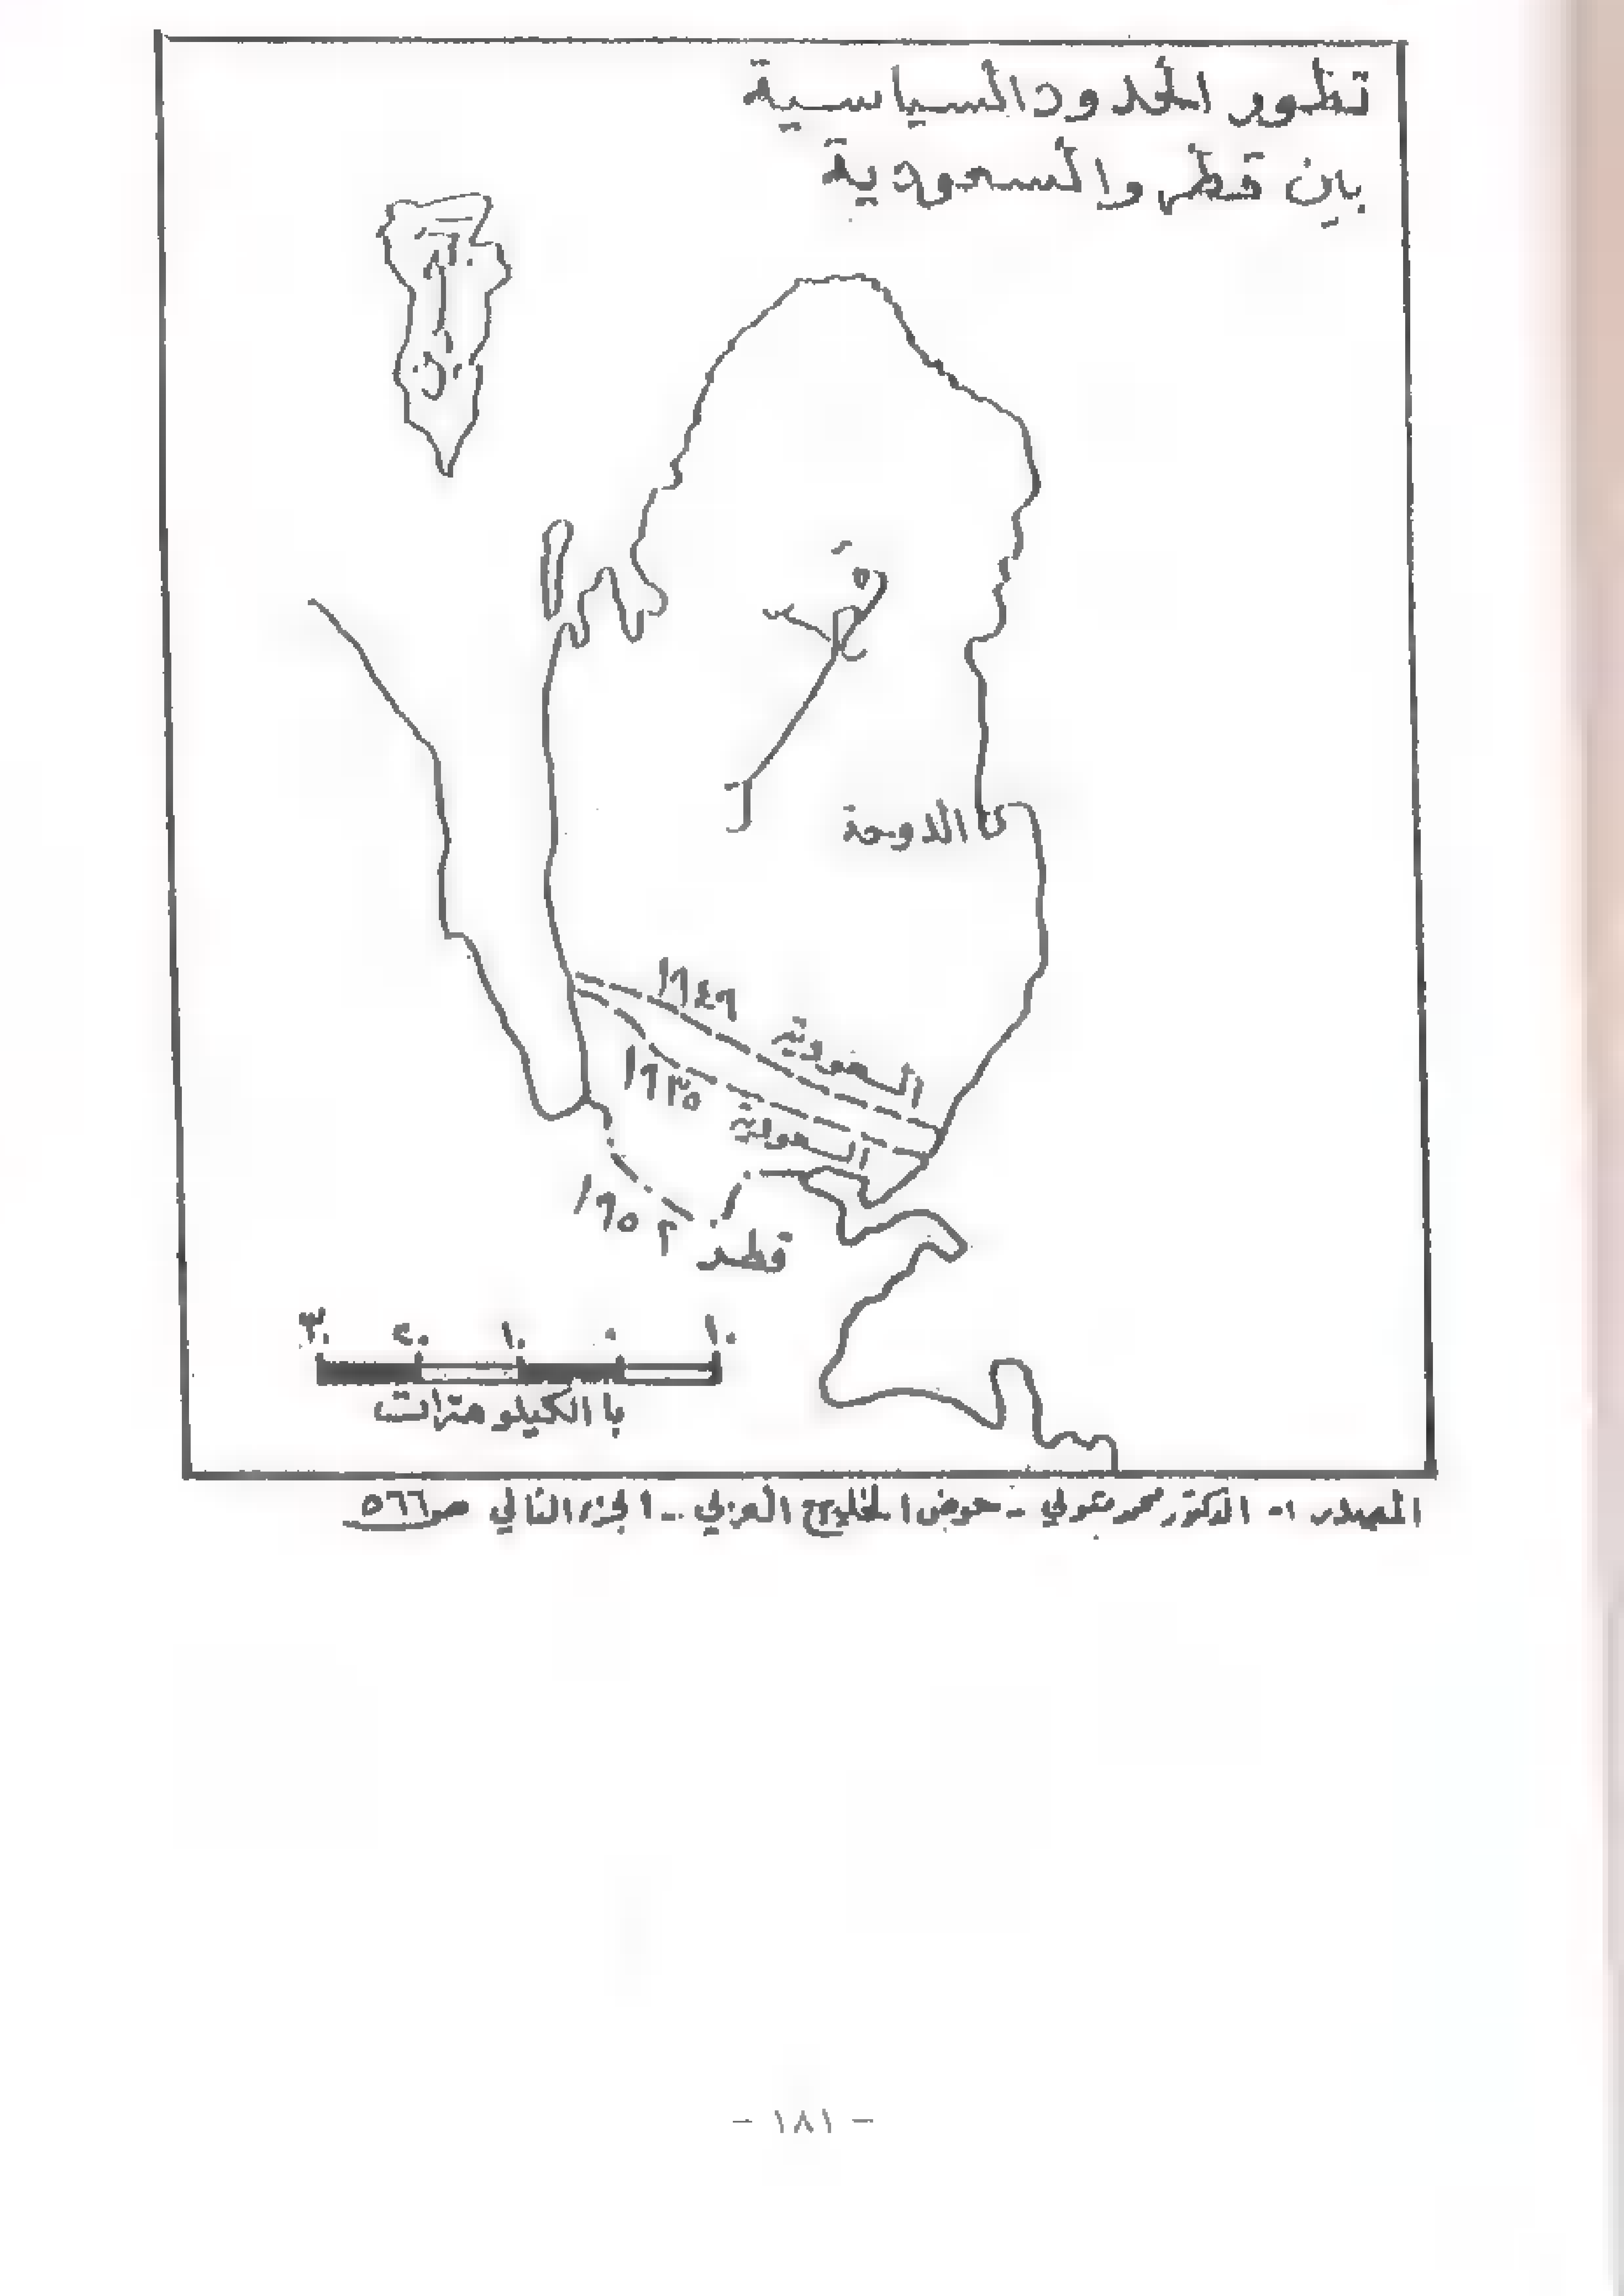 تطور الحدود السياسية
بين قطر والسعودية
البحرين
قطر
الدوحة
١٩٤٩
السعودية
١٩٣٥
السعودية
١٩٥٢
قطر
٣٠ ٢٠ ١٠ ٠ ١٠
با الكيلو مترات
المصدر ١- الدكتور محمد متولي - حوض الخليج العربي - الجزء الثاني ص٥٦٦
- ١٨١ -